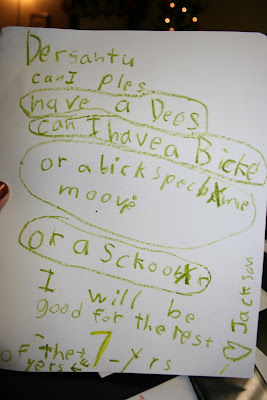 Dersantu
canI ples
have a Dees
can I havea Bicke
or a bick speck me
moovie
or a sckootr
I will be
good for the rest
of thet 7-yrs
yers
Jackson